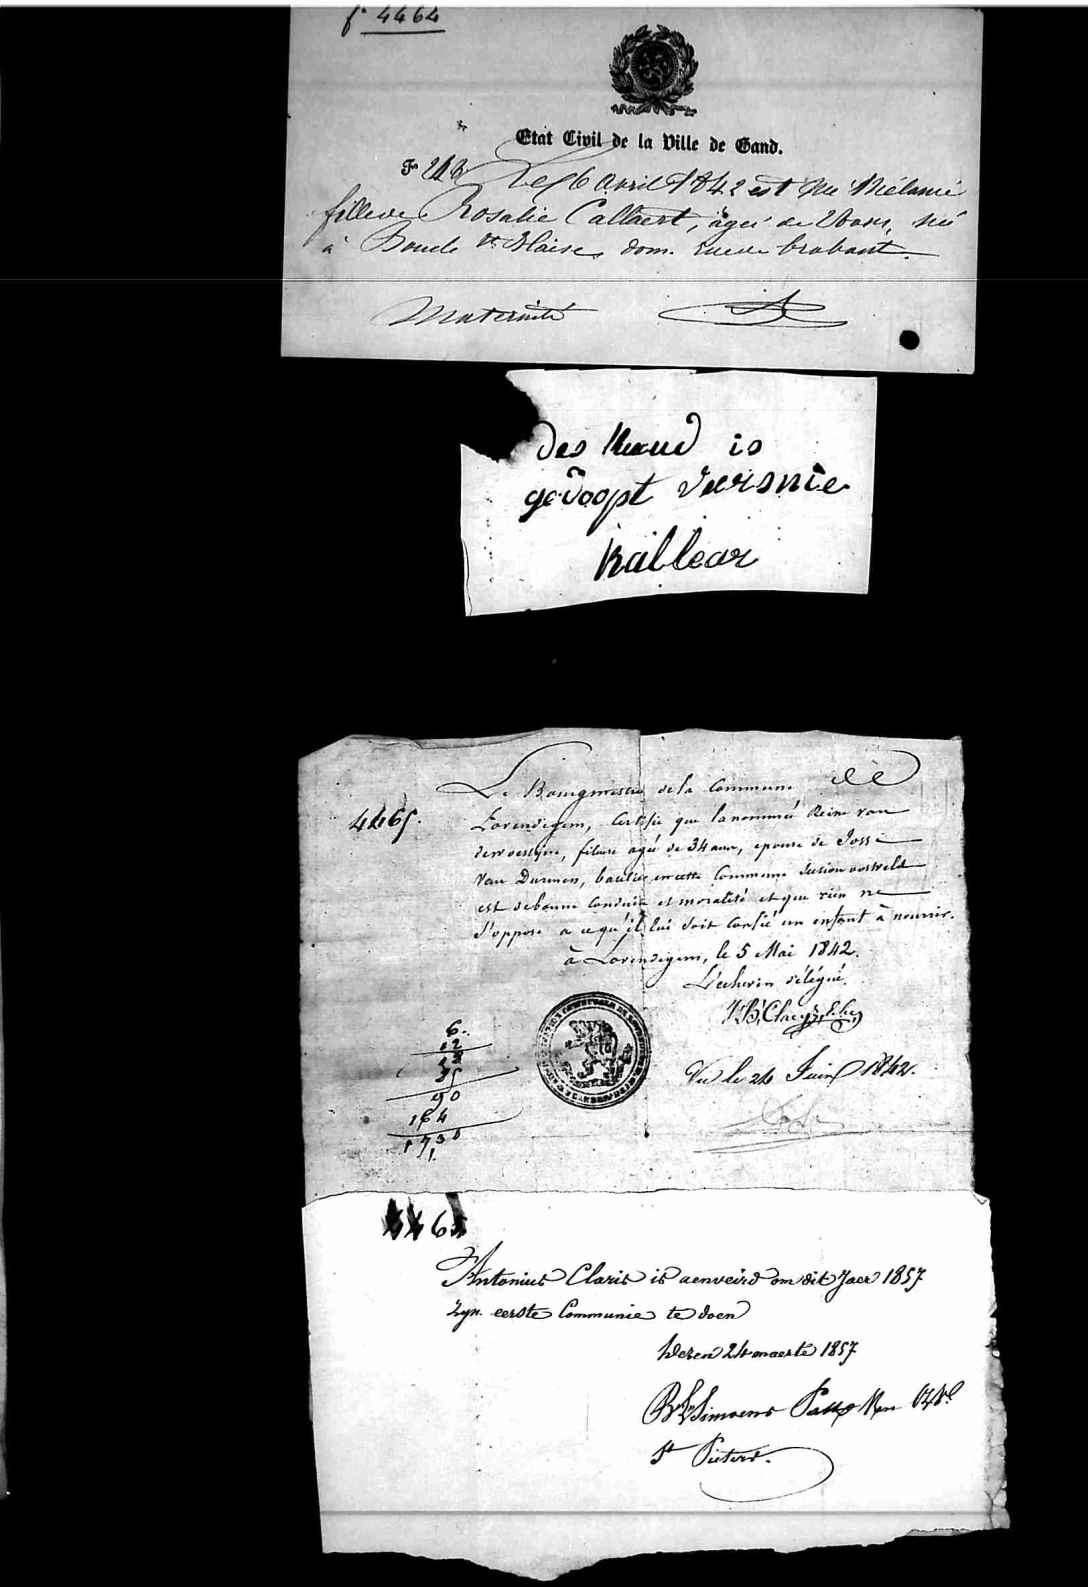 f° 4464
Etat Civil de la Ville de Gand.
F° 213 Le 6 avril 1842 est née Mélanie
fille de Rosalie Callaert, agée de ans, née
à Boucle St Blaise, dom. rue de brabant.
Maternité
des kend is
gedoopt
kallear
4465. Le Bourgmestre de la Commune de
Lovendegem, certifie que la nommée Reine van
, fileuse agée de 34 ans, epouse de Josse
Van Durmen, en cette Commune
est de bonne conduite et moralité et que rien ne
s'oppose a ce qu'il lui soit confié un enfant à nourrir.
à Lovendegem, le 5 Mai 1842.
L'echevin délégué.
6.
12
18
35
90
164
1730
1.
Vu le 24 Juin 1842.
4465
Antonius Claris is aenveird om dit Jaer 1857
zyn eerste Communie te doen
dezen 24 maerte 1857
Simoens Past
St Pieters.